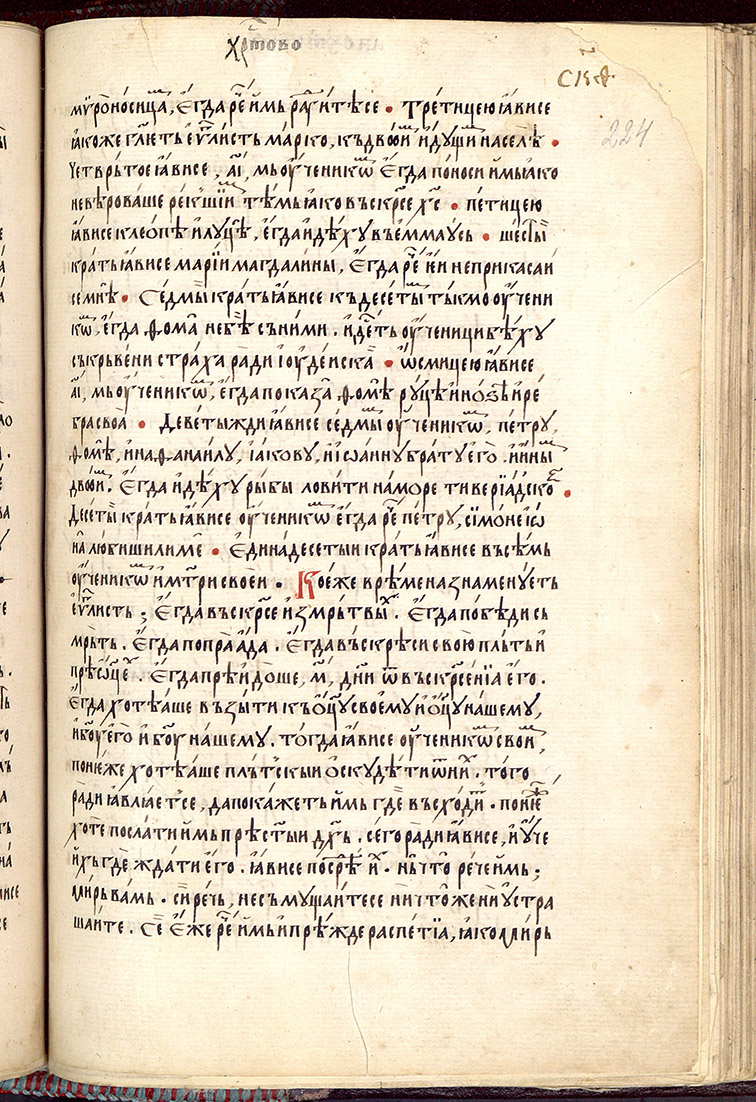 хрⷭ҇тово
СКД
224
мѵроносица, Єгда рⷱ҇е имь раⷣуитѣсе • Третицею ꙗвисе
ꙗкоже гл҃ѥть еѵⷢ҇листь марко, къ двоимⷨ идущиⷨ на селѣ •
Четврьтое ꙗвисе, аⷤі, мь оученикѡⷨ Єгда поноси имь ꙗко
невѣроваше рекшіиⷨ тѣмь ꙗко въскрⷭ҇се хⷭ҇с • петицею
ꙗвисе клеопѣ и луцѣ, егда идѣху въ еммаусь • шестыⷤ
краты ꙗвисе маріи магдалини, Єгда рⷱ҇е ѥи неприкасаи
се мнѣ • Седмы краты ꙗвисе къ десеты тькмо оучени
кѡⷨ, егда ѳома небѣ съ ними. идеⷤть оученици бѣху
съкрьвени страха ради іоудеиска • ѡсмицею ꙗвисе
аⷤі, мь оученикѡⷨ, егда показа ѳомѣ руцѣ и ноѕѣ и ре
бра своа • Деветыжди ꙗвисе седмы оученикѡⷨ, петру,
ѳомѣ, и наѳанаилу, іакову, и іѡанну брату его. и иныⷨ
двоиⷨ. Єгда идѣху рыбы ловити на море тиверіадскоⷨ •
Десеты краты ꙗвисе оученикѡⷨ егда рⷱ҇е петру, сімоне іѡ
на любиши ли ме • Єдинадесеты краты ꙗвисе въсѣмь
оученикѡⷨ и мт҃ри своеи • Коеже врѣмена знаменуѥть
еѵⷢ҇листь ; Єгда въскрⷭ҇се из мрьтвыⷯ. Єгда побѣди сь
мрьть. Єгда попра ада. Єгда въскрѣси свою пльть и
прѣѡⷰ҇цеⷯ. Єгда преидоше, м҃, дн҃и ѿ въскрⷭ҇сеніа его.
Єгда хотѣаше възыти къ оц҃у своему и оц҃у нашему,
и б҃оу его и б҃оу нашему. тогда ꙗвисе оученикѡⷨ своиⷨ,
понеже хотѣаше пльтскы и оскудѣти ѿ ниⷯ. того
ради ꙗвлꙗетсе, да покажеть имь где въсходиⷮ. понѥⷤ
хоте послати имь прѣст҃ыи дх҃ь. сего ради ꙗвисе, и уче
ихь где ждати его. ꙗвисе посрⷣѣ иⷯ. нь что рече имь ;
мирь вамь. сирѣчь, несъмущаитесе ничтоже ни устра
шаите. Се Єже рⷱ҇е имь и прѣжде распетіа, ꙗко мирь